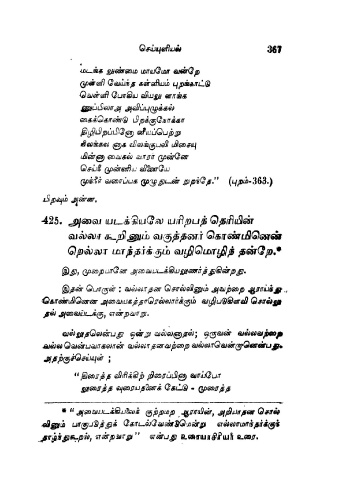 செய்யுளியல் 367
மடங்க லுண்மை மாயமோ வன்றே
முள்ளி வேய்ந்த கள்ளியம் புறங்காட்டு
வெள்ளி போகிய வியலு ளாங்க
ணுப்பிலாஅ அவிப்புழுக்கல்
கைக்கொண்டு பிறக்குநோக்கா
திழிபிறப்பினோ னீயப்பெற்று
நிலங்கல னாக விலங்குபலி மிசையு
மின்னா வைகல் வாரா முன்னே
செய்நீ முன்னிய வினையே
முந்நீர் வரைப்பக முழுதுடன் றுறந்தே.” (புறம்-363.)
பிறவும் அன்ன.
425. அவை யடக்கியலே யரிறபத் தெரியின்
வல்லா கூறினும் வகுத்தனர் கொண்மினென்
றெல்லா மாந்தர்க் கும் வழிமொழிந் தன்றே.*
இது, முறையானே அவையடக்கியலுணர்த்துகின்றது.
இதன் பொருள் : வல்லாதன சொல்லினும் அவற்றை ஆராய்ந்து
கொண்மினென அவையகத்தாரெல்லார்க்கும் வழிபடுகிளவி சொல்லு
தல் அவையடக்கு, என்றவாறு.
வல்லுதலென்பது ஒன்று வல்லனாதல்; ஒருவன் வல்லவற்றை
வல்ல வென்பவாகலான் வல்லாதனவற்றை வல்லாவென்றானென்பது.
அதற்குச்செய்யுள் ;
“திரைத்த விரிக்கிற் றிரைப்பினா வாய்போ
லுரைத்த வுரையதனைக் கேட்டு - முரைத்த
* “ அவையடக்கியலைக் குற்றமற ஆராயின், அறியாதன சொல்
லினும் பாகுபடுத்துக் கோடல்வேண்டுமென்று எல்லாமாந்தர்க்குந்
தாழ்ந்துகூறல், என்றவாறு ” என்பது உரையாசிரியர் உரை.